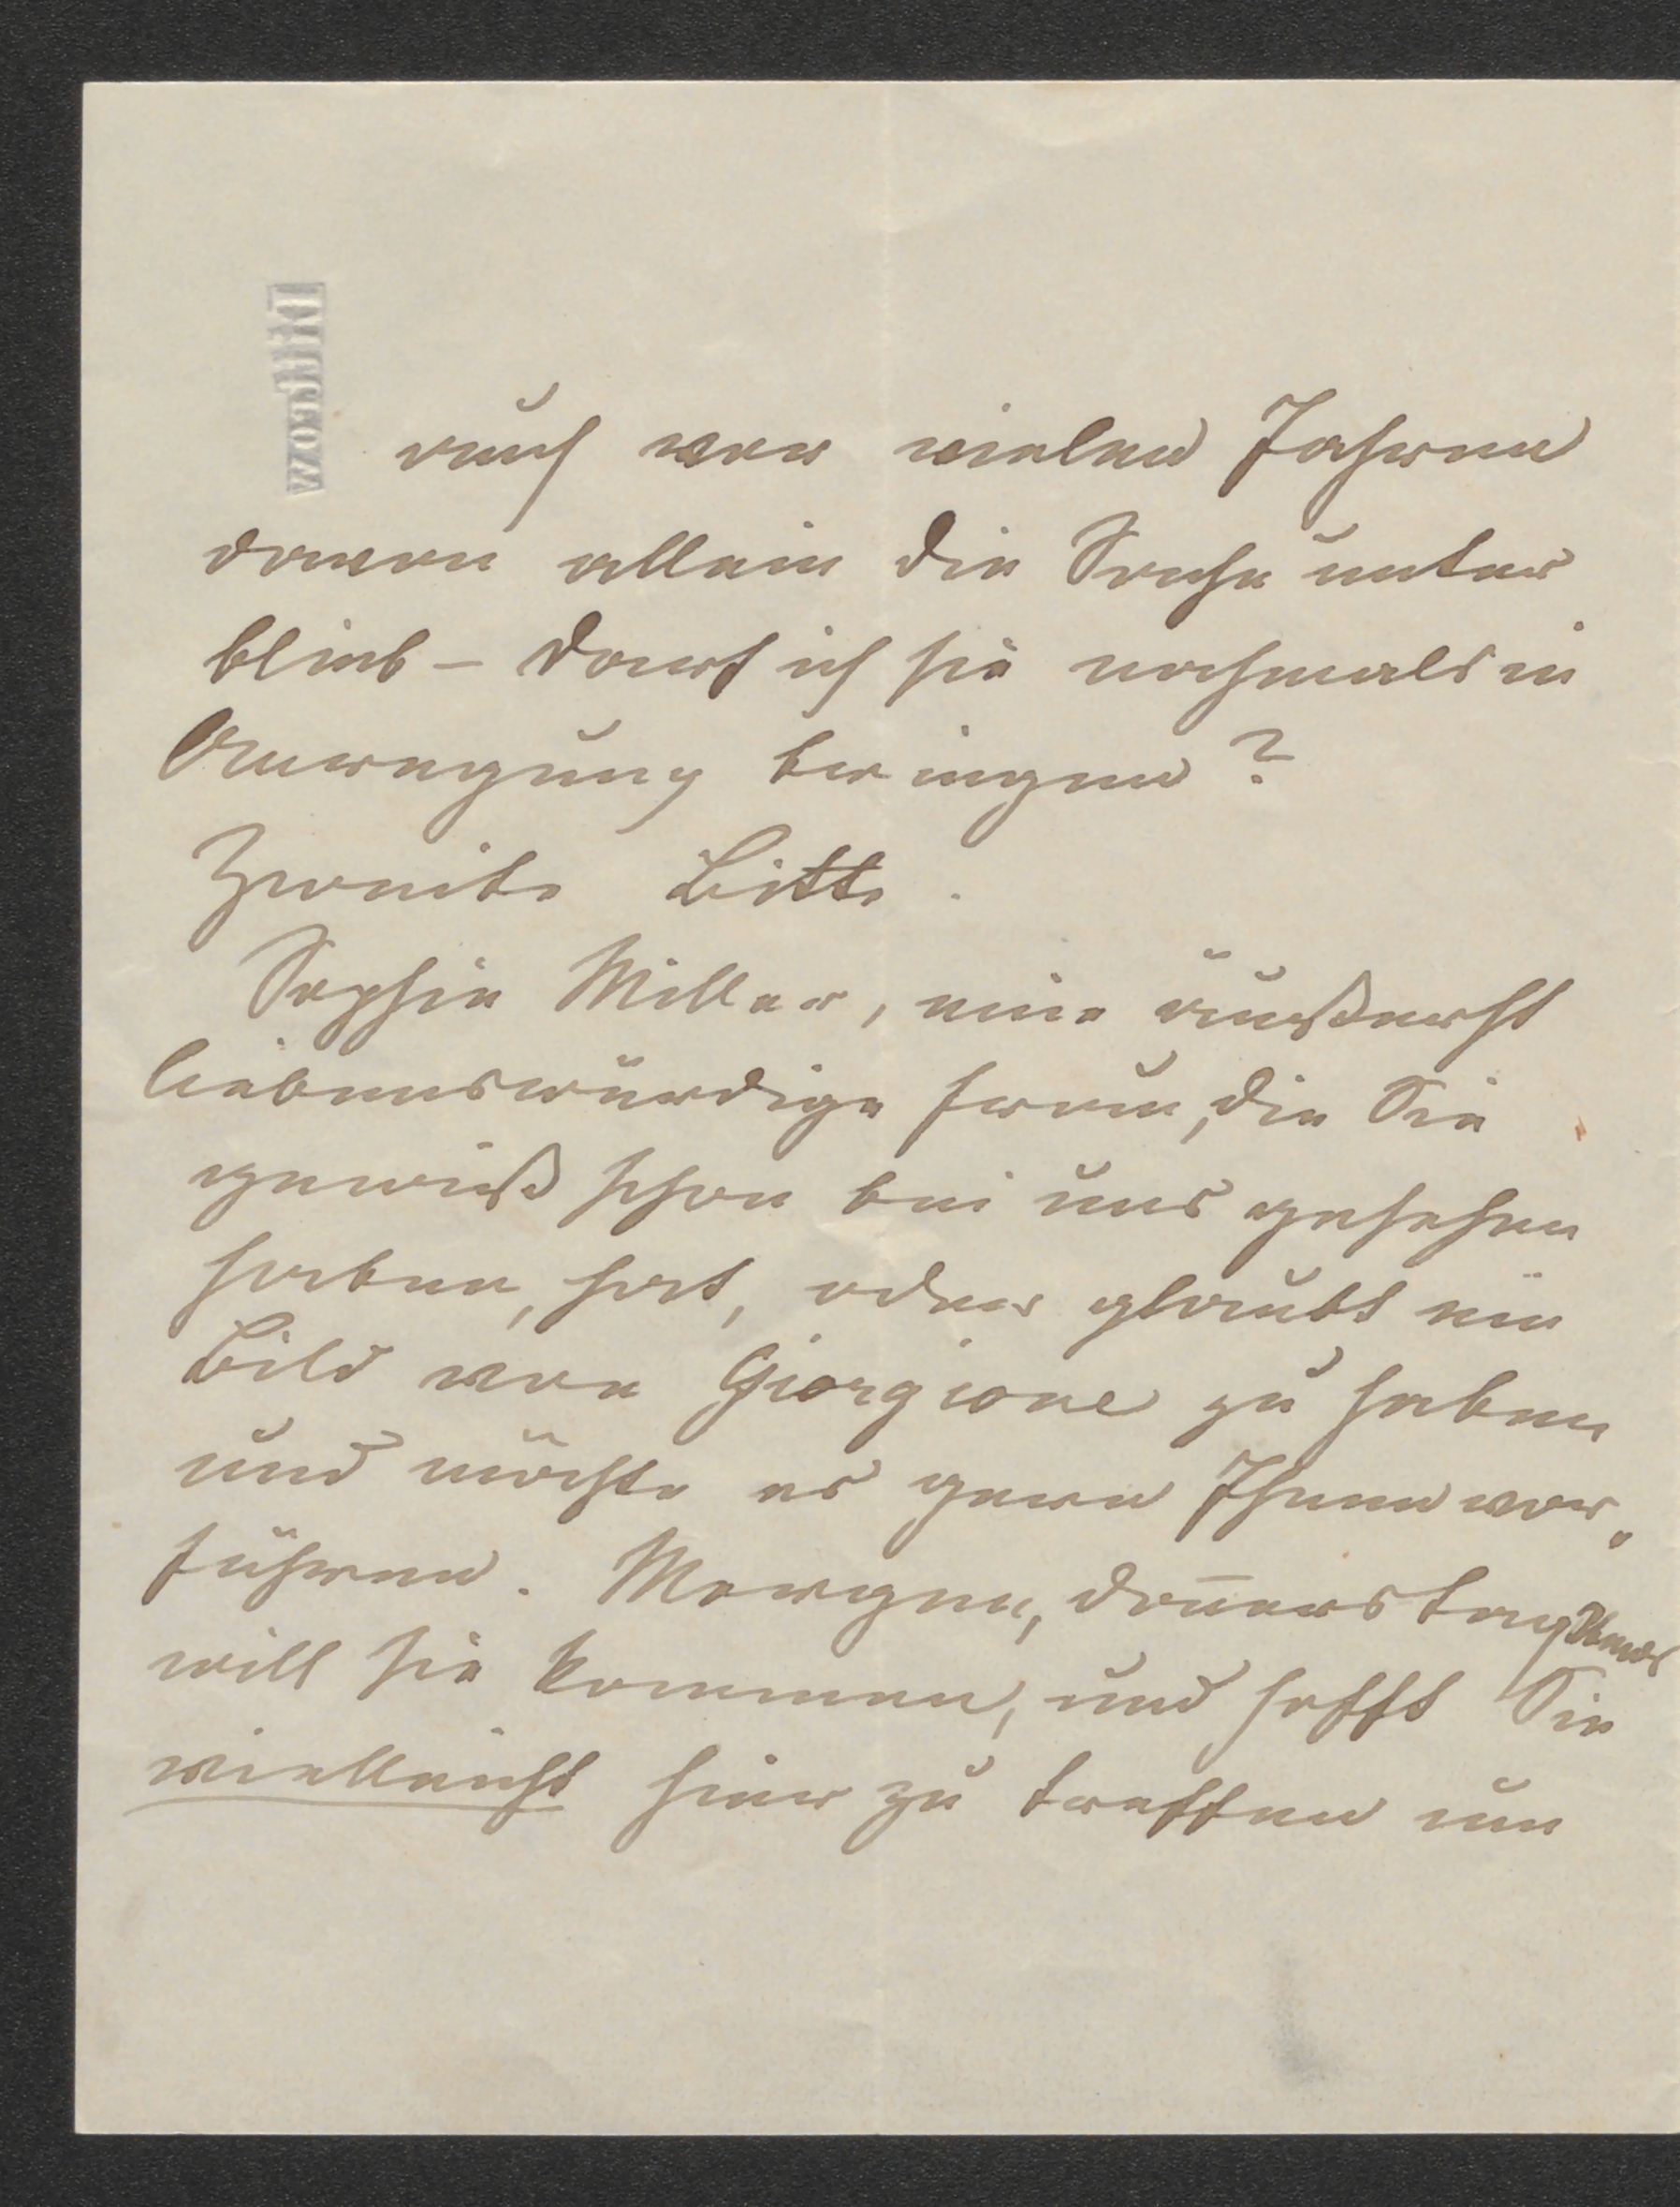 auch vor vielen Jahren
davon allein die Sache unter
blieb – darf ich sie nochmals in
Anregung bringen?
Zweite Bitte.
Sophie Miller, eine äußerst
liebenswürdige Frau, die Sie
gewiß schon bei uns gesehen
haben, hat, oder glaubt ein
Bild von Giorgione zu haben
und möchte es gern Ihnen vor„
führen. Morgen, Donnerstag Abends
will sie kommen, und hofft Sie
vielleicht hier zu treffen um